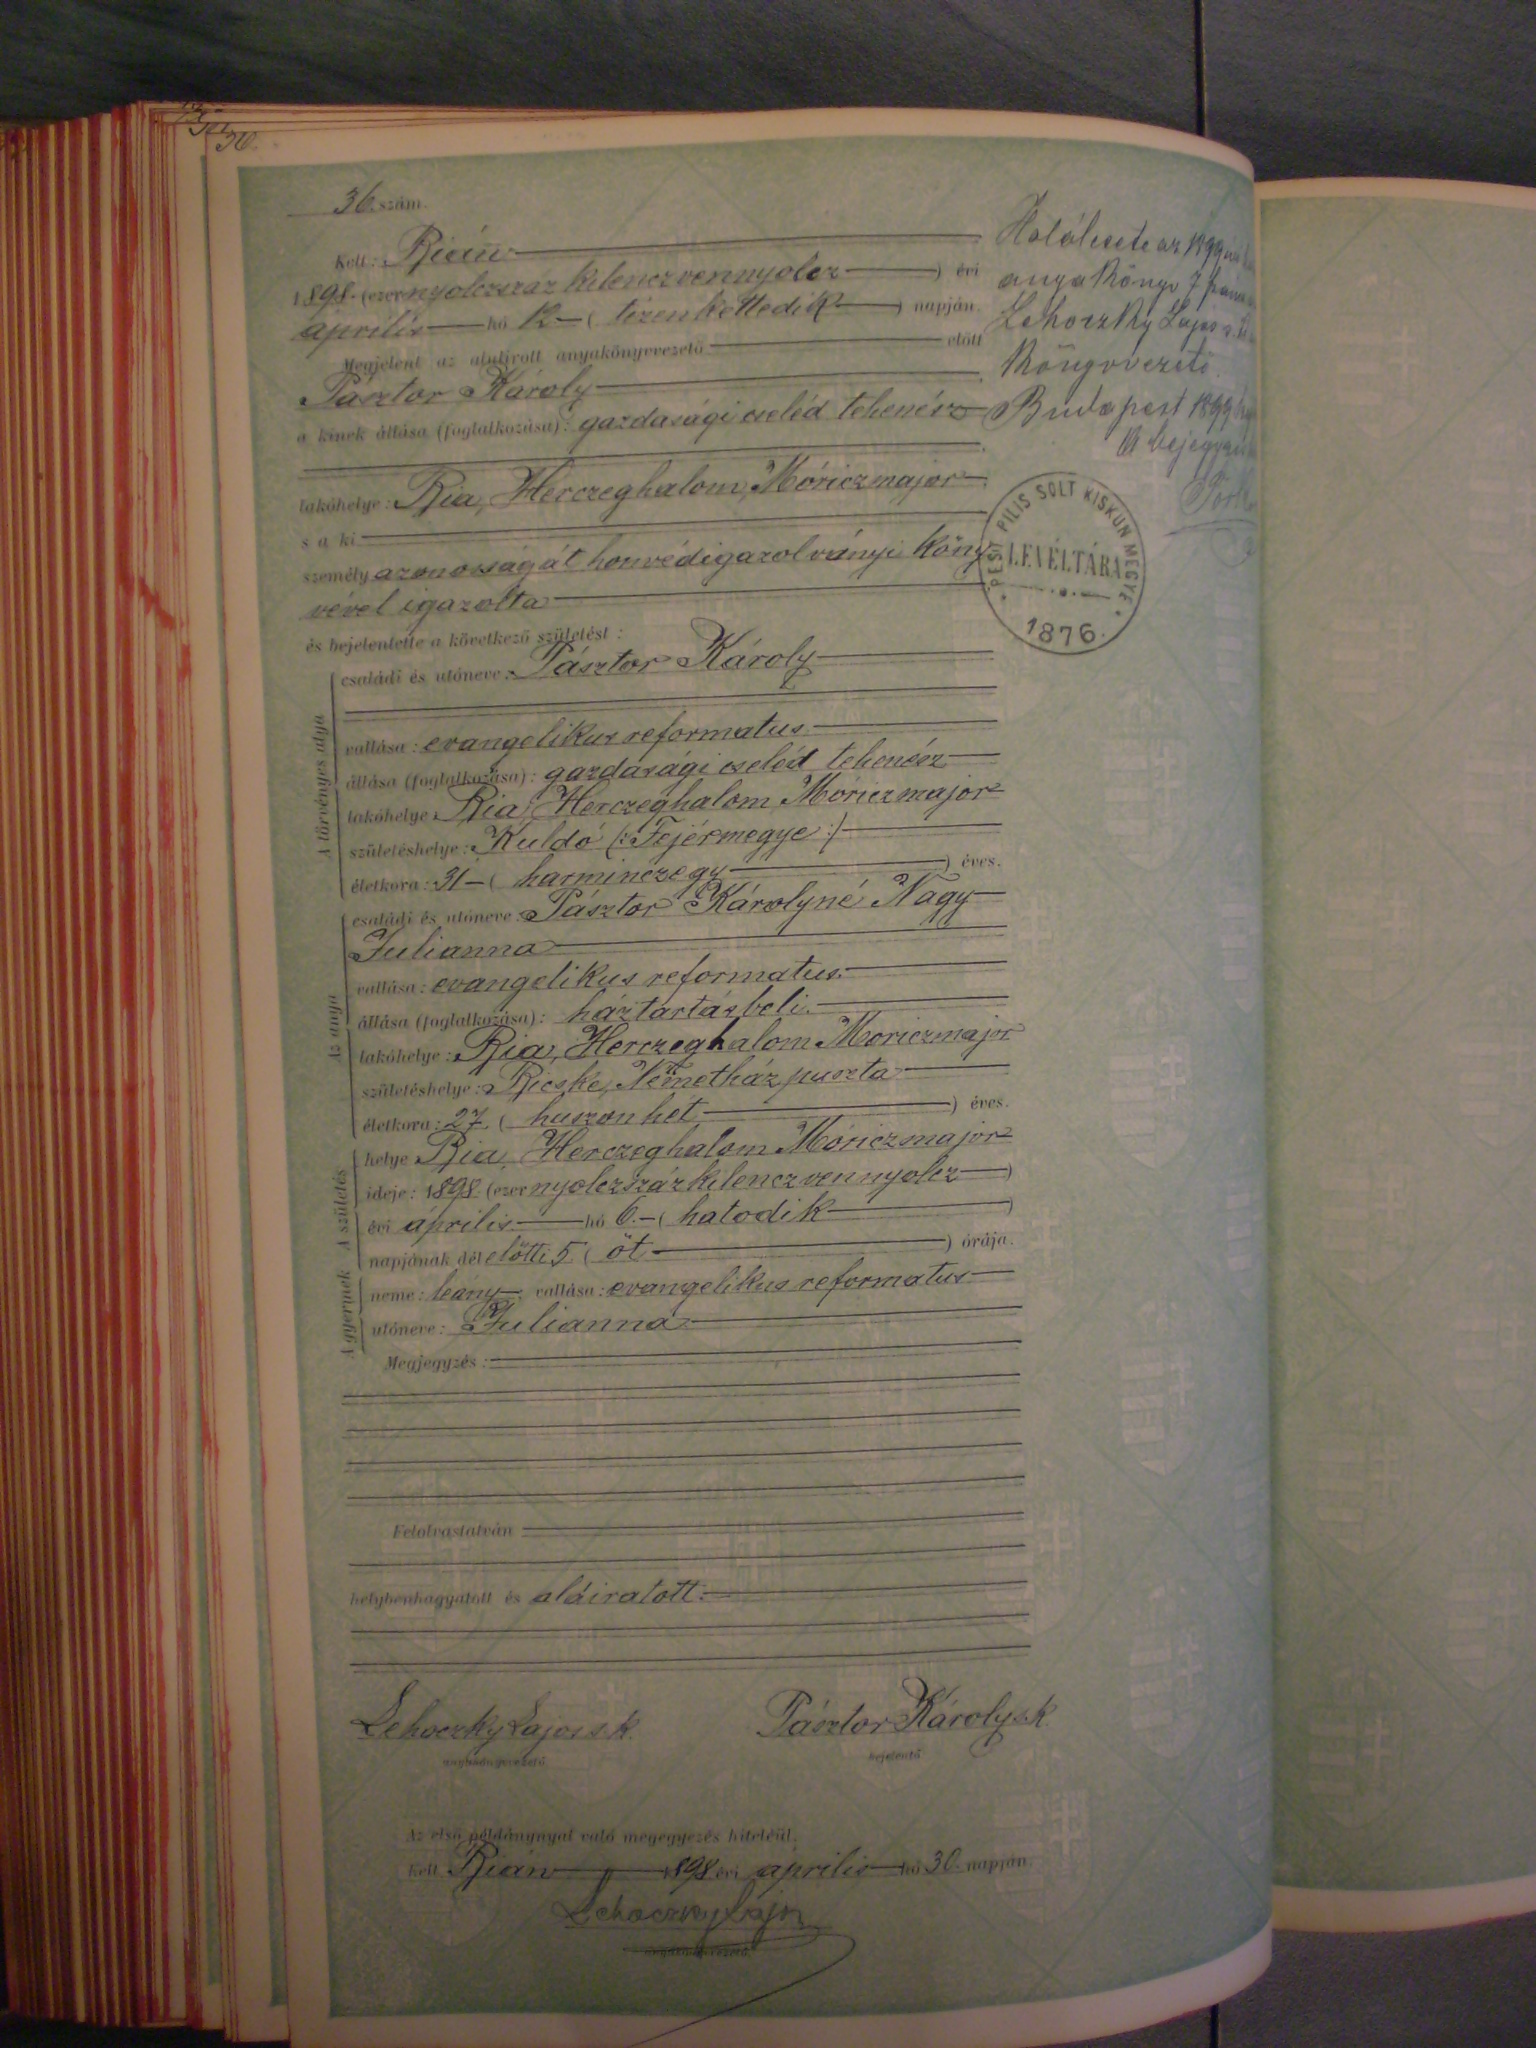 36. szám.
Kelt: Bián
1898. (ezer nyolczszáz kilenczvennyolcz ) évi
április hó 12 ( tizenkettedik ) napján.
Megjelent az alulírott anyakönyvvezető előtt
Pásztor Károly
a kinek állása (foglalkozása): gazdasági cseléd tehenész
lakóhelye: Bia, Herczeghalom, Móriczmajor
s a ki
személy azonosságát honvédigazolványi köny-
vével igazolta
és bejelentette a következő születést:
A törvényes atya
családi és utóneve: Pásztor Károly
vallása: evangelikus reformatus
állása (foglalkozása): gazdasági cseléd tehenész
lakóhelye: Bia, Herczeghalom, Móriczmajor
születéshelye: Kuldó (: Fejérmegye :)
életkora: 31 ( harminczegy ) éves.
Az anya
családi és utóneve: Pásztor Károlyné Nagy
Julianna
vallása: evangelikus reformatus.
állása (foglalkozása): háztartásbeli.
lakóhelye: Bia, Herczeghalom Moriczmajor
születéshelye: Bicske, Németház puszta
életkora: 27 ( huszonhét ) éves.
A születés
helye Bia, Herczeghalom Móriczmajor
ideje: 1898. (ezer nyolczszáz kilenczvennyolcz )
évi április hó 6. ( hatodik )
napjának dél előtti 5 ( öt ) órája.
A gyermek
neme: leány, vallása: evangelikus reformatus
utóneve: Julianna
Megjegyzés:
Felolvastatván
helybenhagyatott és aláiratott.
Lehoczky Lajos s.k. Pásztor Károly s.k.
anyakönyvvezető bejelentő
Az első példánynyal való megegyezés hiteléül.
Kelt Bián 1898 évi április hó 30. napján
Lehoczky Lajos
anyakönyvvezető.
Halálesete az 1899
anyakönyv 7
Lehoczky Lajos
könyvvezető.
Budapest 1899
A
PEST PILIS SOLT KISKUN MEGYE
LEVÉLTÁRA
1876.
36.